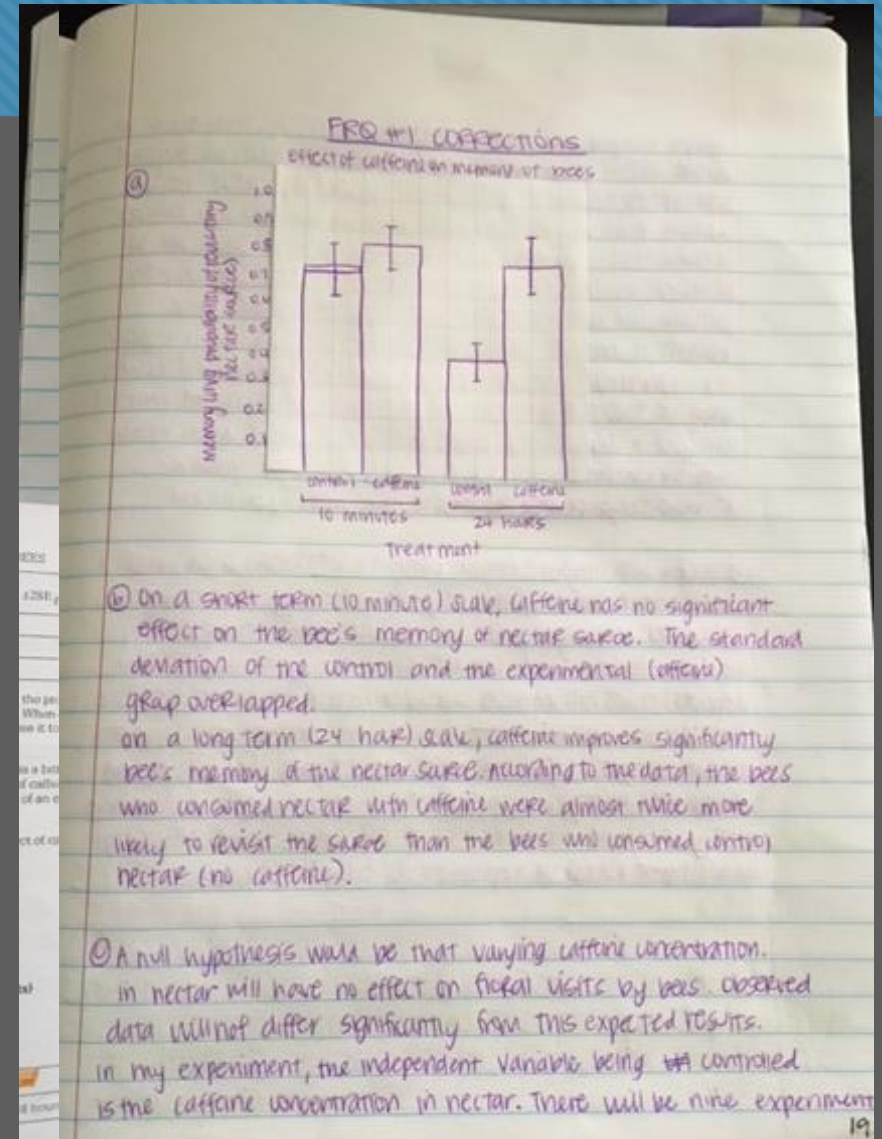 FRQ #1 CORRECTIONS
Effect of caffeine on memory of bees
a
memory (avg probability of revisiting
nectar sarce)
1.0
0.9
0.8
0.7
0.6
0.5
0.4
0.3
0.2
0.1
control caffeine control caffeine
10 minutes 24 hars
Treatment
b On a short term (10 minute) scale, caffeine has no significant
effect on the bee's memory of nectar sarce. The standard
deviation of the control and the experimental (caffeine)
grap overlapped.
on a long term (24 har) scale, caffeine improves significantly
bee's memory of the nectar sarce. According to the data, the bees
who consumed nectar with caffeine were almost twice more
likely to revisit the sarce than the bees who consumed control
nectar (no caffeine).
c A null hypothesis would be that varying caffeine concentration.
in nectar will have no effect on floral visits by bees. Observed
data will not differ significantly from this expected results.
In my experiment, the independent variable being controlled
is the caffeine concentration in nectar. There will be nine experiment
19
BEES
When
ct of